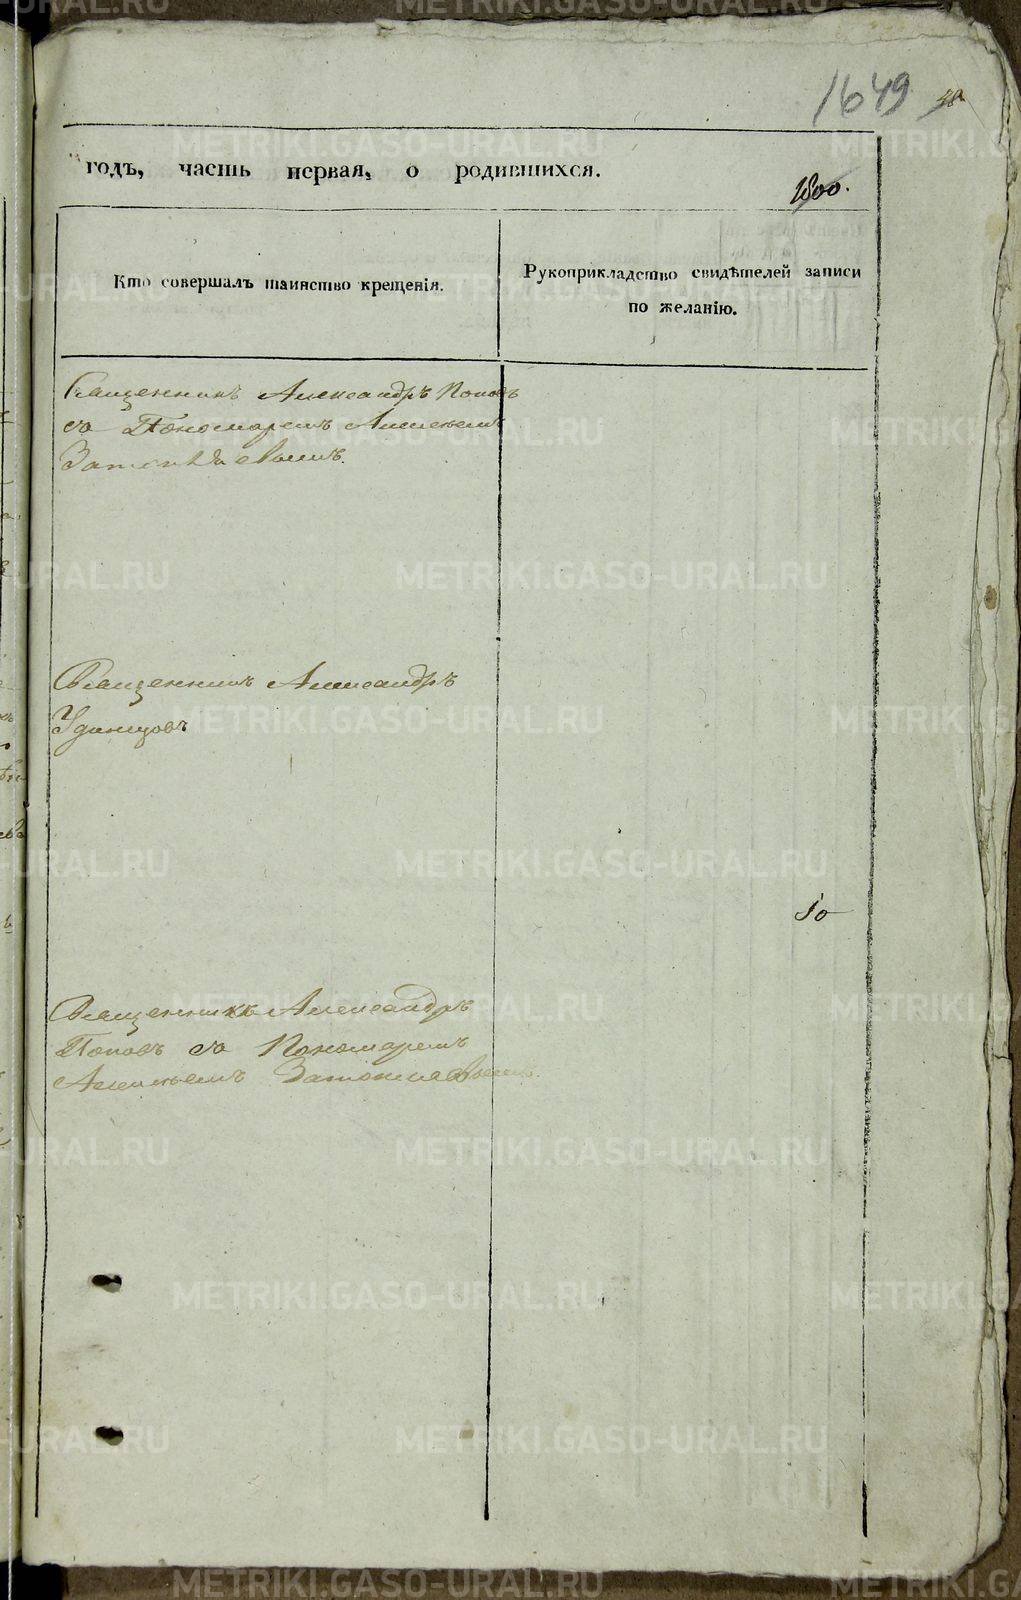 1649
годъ, часть первая, о родившихся.
1800.
Кто совершалъ таинство крещенія.
Рукоприкладство свидѣтелей записи
по желанію.
Священникъ Александръ Поповъ
съ Пономаремъ Алексѣемъ
Священникъ Александръ
Удинцовъ
10
Священникъ Александръ
Поповъ съ Пономаремъ
Алексѣемъ
METRIKI.GASO-URAL.RU